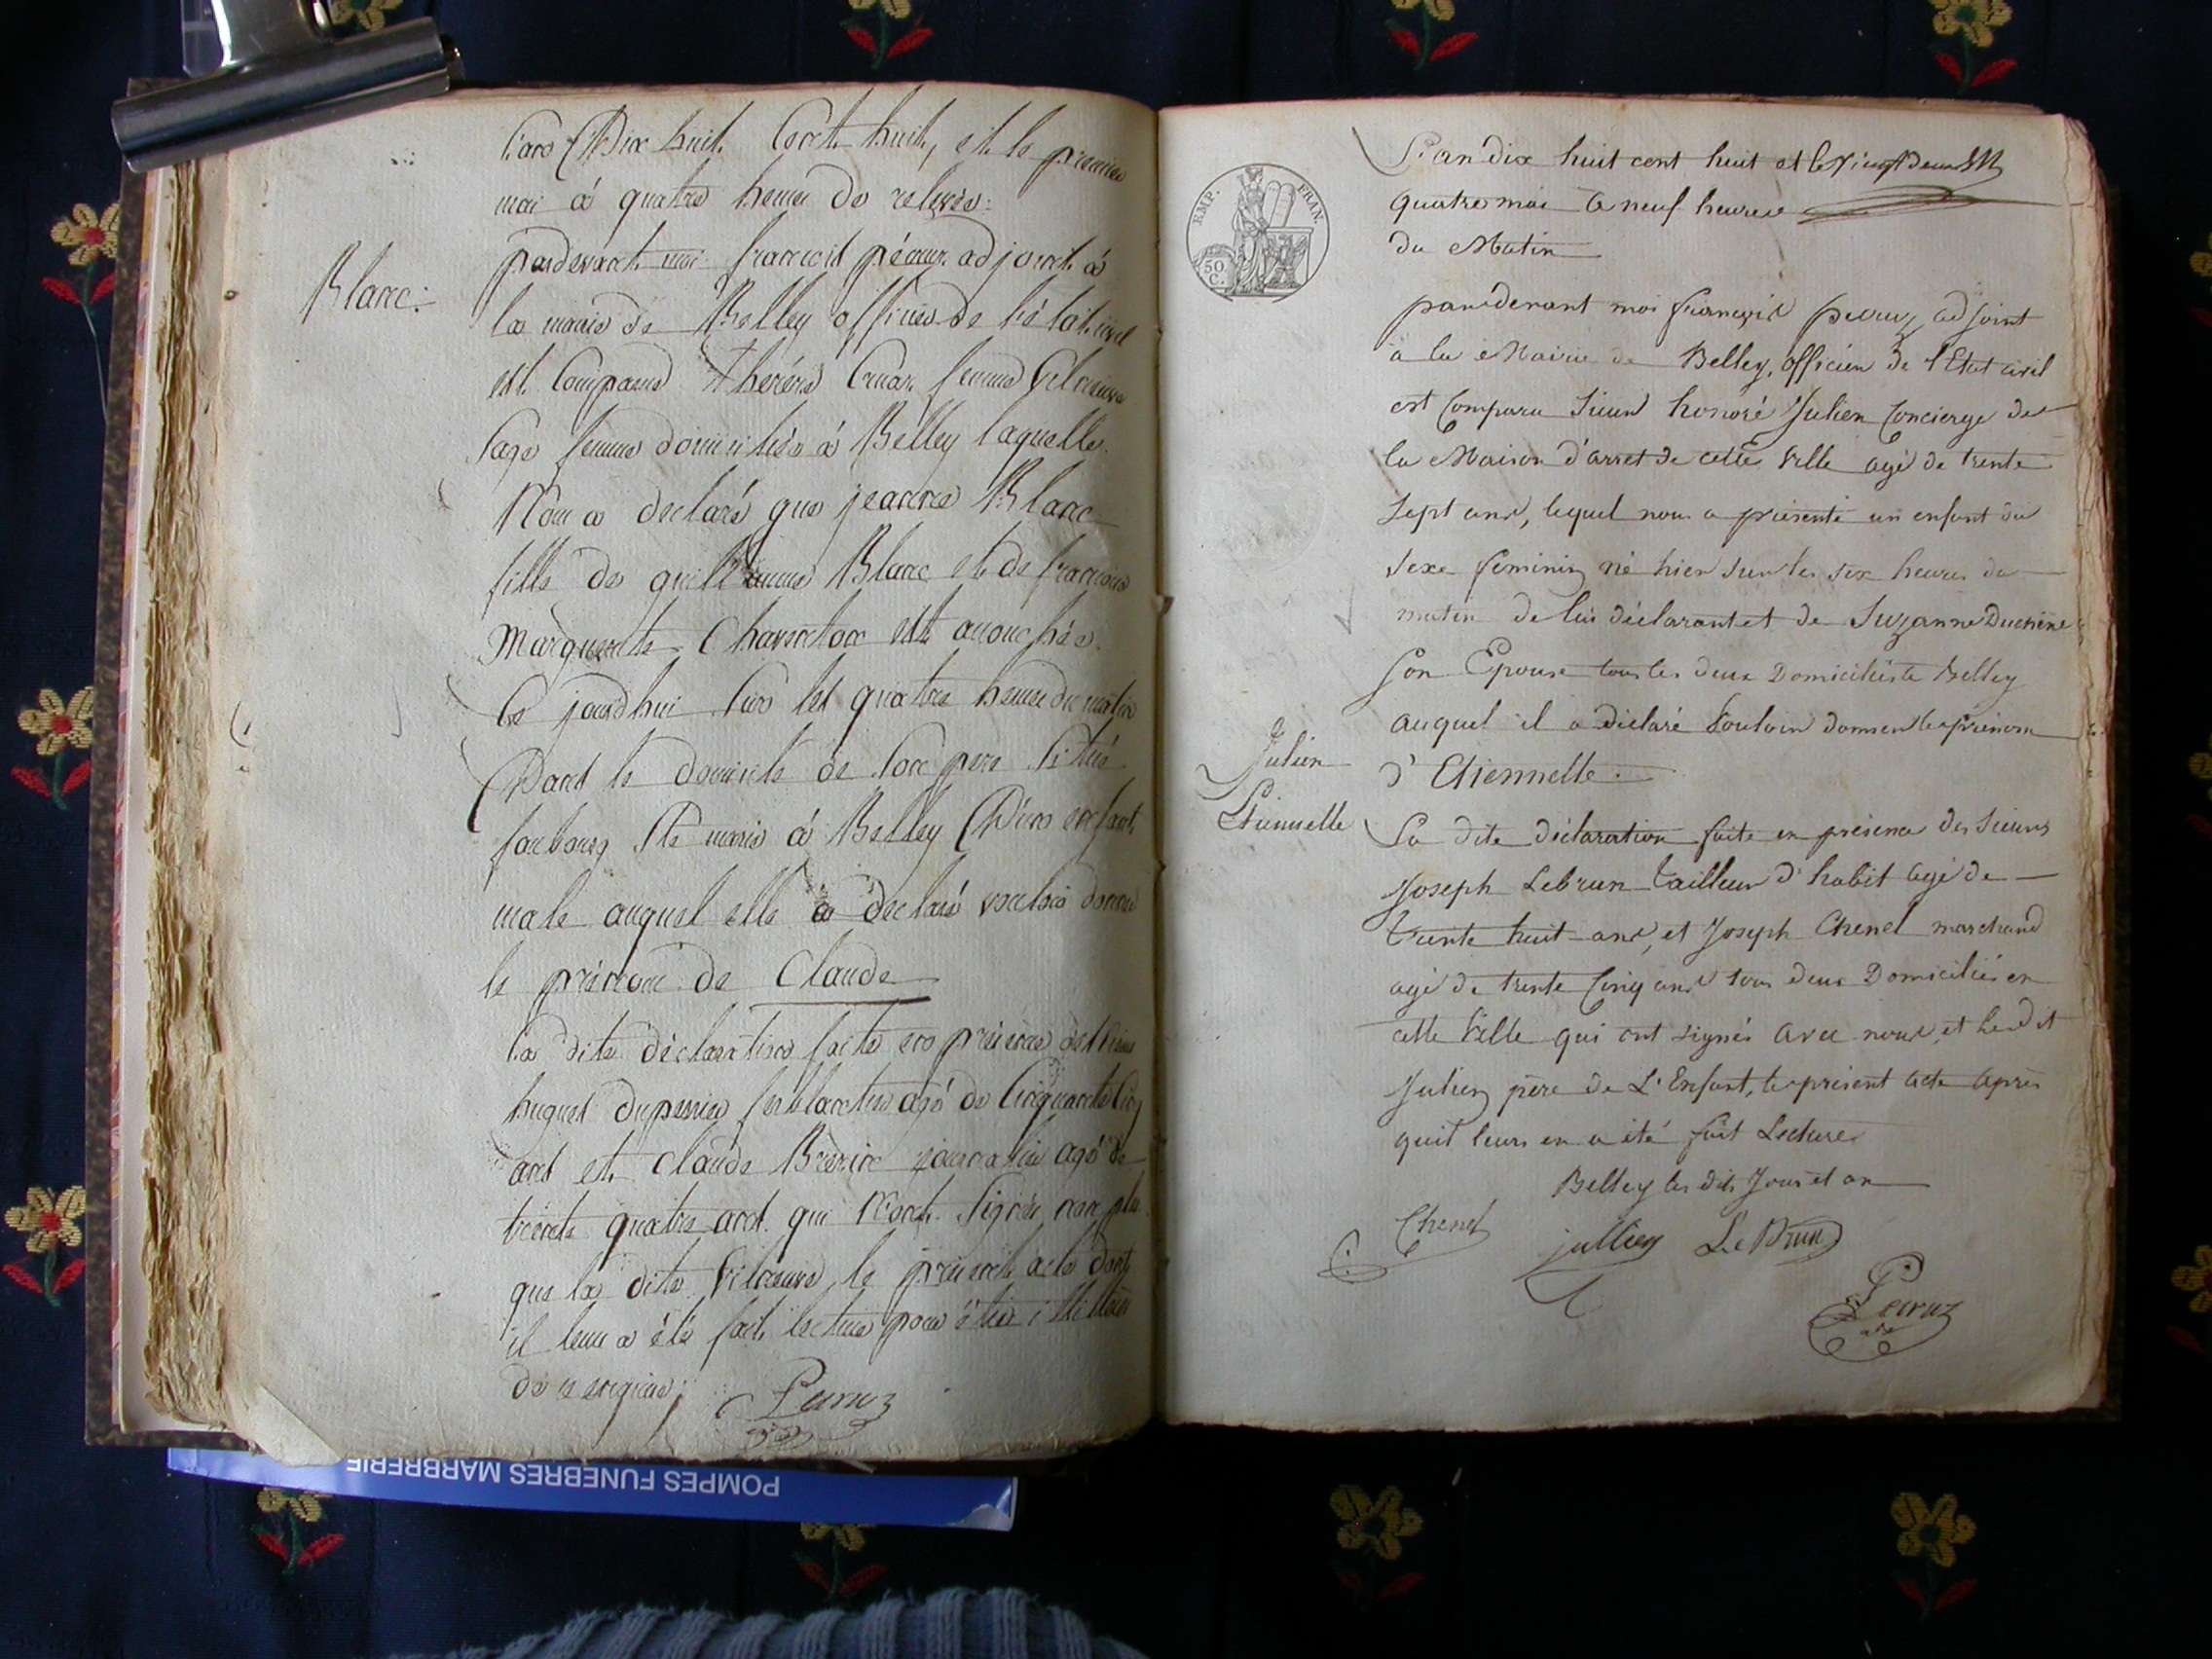 L'an Dix huit Cent huit, et le premier
mai à quatre heures de relevée
pardevant moi françois pécruz adjoint à
la mairie de Belley officier de l'état civil
Blanc
est Comparue Thérése femme
sage femme domiciliée à Belley laquelle
Nous a declaré que jeanne Blanc
fille de guillaume Blanc et de francoise
Marguerite est accouchée
Ce jourdhui sur les quatre heures du matin
Dans le domicile de son pere situé
faubourg Ste marie à Belley D'un enfant
male auquel elle a declaré vouloir donner
le prénom de Claude
La dite déclaration faite en présence des sieurs
hugues duperrier ferblantier agé de Cinquante Cinq
ans et Claude journalier agé de
trente quatre ans qui n'ont signés non plus
que la dite le présent acte dont
il leur a été fait lecture pour être
de ce requise
Pecruz
POMPES FUNEBRES MARBRERIE
EMP. FRAN.
50 C.
L'an dix huit cent huit et le vingt
quatre mai à neuf heures
du Matin
pardevant moi françois pecruz adjoint
à la Mairie de Belley, officier de l'Etat civil
est Comparu Sieur honoré Julien Concierge de
la Maison d'arret de cette Ville agé de trente
Sept ans, lequel nous a présenté un enfant du
Sexe feminin né hier sur les six heures du
matin de lui déclarant et de Suzanne Duchêne
son Epouse tous les deux Domiciliés à Belley
auquel il a déclaré Vouloir donner le prénom
Julien
d'Etiennette.
Etiennette
La dite déclaration faite en présence des Sieurs
Joseph Lebrun tailleur d'habit agé de
trente huit ans, et Joseph Chenel marchand
agé de trente Cinq ans tous deux Domiciliés en
cette Ville qui ont signés avec nous, et le dit
Julien père de L'Enfant, le présent acte après
quil leurs en a été fait Lecture
Belley les dits Jour et an
Chenel jullien LeBrun
Pecruz